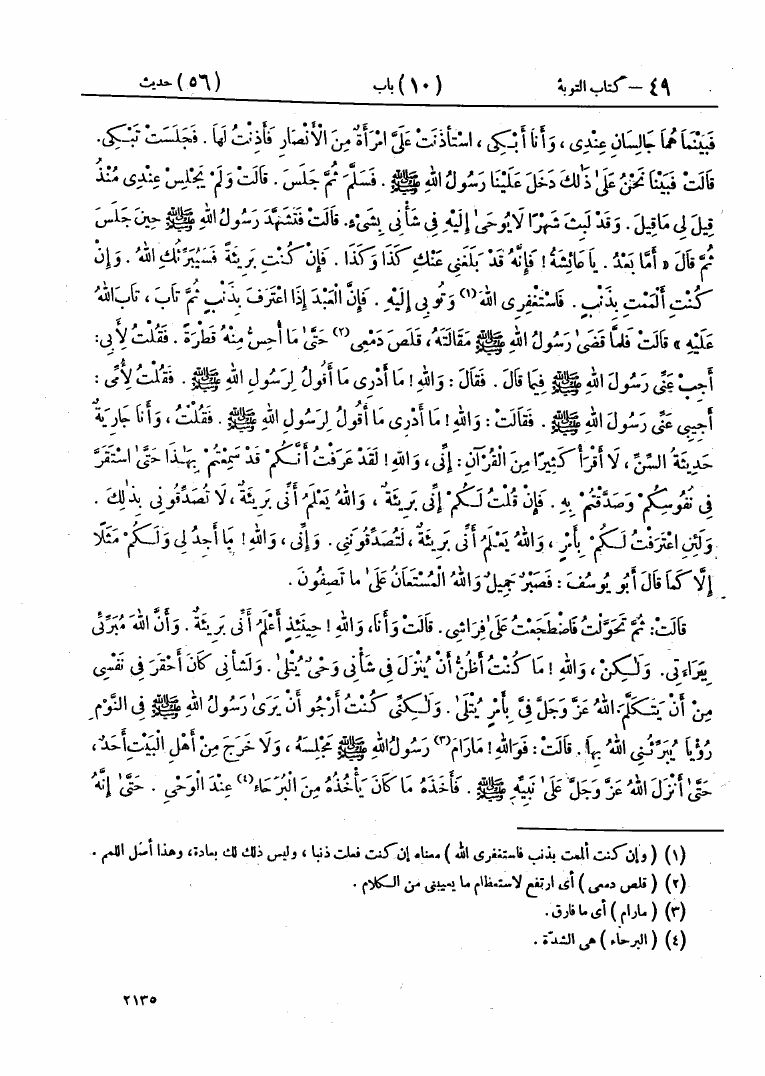 ٤٩ – كتاب التوبة (١٠) باب (٥٦) حديث
فَبَيْنَمَا هُمَا جَالِسَانِ عِنْدِى ، وَأَنَا أَبْكِى ، اسْتَأْذَنَتْ عَلَىَّ امْرَأَةٌ مِنَ الْأَنْصَارِ فَأَذِنْتُ لَهَا . فَجَلَسَتْ تَبْكِى .
قَالَتْ فَبَيْنَا نَحْنُ عَلَىٰ ذَٰلِكَ دَخَلَ عَلَيْنَا رَسُولُ اللهِ ﷺ . فَسَلَّمَ ثُمَّ جَلَسَ . قَالَتْ وَلَمْ يَجْلِسْ عِنْدِى مُنْذُ
قِيلَ لِى مَاقِيلَ . وَقَدْ لَبِثَ شَهْرًا لَايُوحَىٰ إِلَيْهِ فِى شَأْنِى بِشَىْءٍ . قَالَتْ فَتَشَهَّدَ رَسُولُ اللهِ ﷺ حِينَ جَلَسَ
ثُمَّ قَالَ « أَمَّا بَعْدُ . يَا عَائِشَةُ ! فَإِنَّهُ قَدْ بَلَغَنِى عَنْكِ كَذَا وَكَذَا . فَإِنْ كُنْتِ بَرِيئَةً فَسَيُبَرِّئُكِ اللهُ . وَإِنْ
كُنْتِ أَلْمَمْتِ بِذَنْبٍ . فَاسْتَغْفِرِى اللهَ(١) وَتُوبِى إِلَيْهِ . فَإِنَّ الْعَبْدَ إِذَا اعْتَرَفَ بِذَنْبٍ ثُمَّ تَابَ ، تَابَ اللهُ
عَلَيْهِ » قَالَتْ فَلَمَّا قَضَىٰ رَسُولُ اللهِ ﷺ مَقَالَتَهُ ، قَلَصَ دَمْعِى(٢) حَتَّىٰ مَا أُحِسُّ مِنْهُ قَطْرَةً . فَقُلْتُ لِأَبِى :
أَجِبْ عَنِّى رَسُولَ اللهِ ﷺ فِيمَا قَالَ . فَقَالَ : وَاللهِ ! مَا أَدْرِى مَا أَقُولُ لِرَسُولِ اللهِ ﷺ . فَقُلْتُ لِأُمِّى :
أَجِيبِى عَنِّى رَسُولَ اللهِ ﷺ . فَقَالَتْ : وَاللهِ ! مَا أَدْرِى مَا أَقُولُ لِرَسُولِ اللهِ ﷺ . فَقُلْتُ ، وَأَنَا جَارِيَةٌ
حَدِيثَةُ السِّنِّ ، لَا أَقْرَأُ كَثِيرًا مِنَ الْقُرْآنِ : إِنِّى ، وَاللهِ ! لَقَدْ عَرَفْتُ أَنَّكُمْ قَدْ سَمِعْتُمْ بِهَٰذَا حَتَّىٰ اسْتَقَرَّ
فِى نُفُوسِكُمْ وَصَدَّقْتُمْ بِهِ . فَإِنْ قُلْتُ لَكُمْ إِنِّى بَرِيئَةٌ ، وَاللهُ يَعْلَمُ أَنِّى بَرِيئَةٌ ، لَا تُصَدِّقُونِى بِذَٰلِكَ .
وَلَئِنِ اعْتَرَفْتُ لَكُمْ بِأَمْرٍ ، وَاللهُ يَعْلَمُ أَنِّى بَرِيئَةٌ ، لَتُصَدِّقُونَنِى . وَإِنِّى ، وَاللهِ ! مَا أَجِدُ لِى وَلَكُمْ مَثَلًا
إِلَّا كَمَا قَالَ أَبُو يُوسُفَ : فَصَبْرٌ جَمِيلٌ وَاللهُ الْمُسْتَعَانُ عَلَىٰ مَا تَصِفُونَ .
قَالَتْ : ثُمَّ تَحَوَّلْتُ فَاضْطَجَعْتُ عَلَىٰ فِرَاشِى . قَالَتْ وَأَنَا ، وَاللهِ ! حِينَئِذٍ أَعْلَمُ أَنِّى بَرِيئَةٌ . وَأَنَّ اللهَ مُبَرِّئِى
بِبَرَاءَتِى . وَلَٰكِنْ ، وَاللهِ ! مَا كُنْتُ أَظُنُّ أَنْ يُنْزَلَ فِى شَأْنِى وَحْىٌ يُتْلَىٰ . وَلَشَأْنِى كَانَ أَحْقَرَ فِى نَفْسِى
مِنْ أَنْ يَتَكَلَّمَ اللهُ عَزَّ وَجَلَّ فِىَّ بِأَمْرٍ يُتْلَىٰ . وَلَٰكِنِّى كُنْتُ أَرْجُو أَنْ يَرَىٰ رَسُولُ اللهِ ﷺ فِى النَّوْمِ
رُؤْيَا يُبَرِّئُنِى اللهُ بِهَا . قَالَتْ : فَوَاللهِ ! مَارَامَ(٣) رَسُولُ اللهِ ﷺ مَجْلِسَهُ ، وَلَا خَرَجَ مِنْ أَهْلِ الْبَيْتِ أَحَدٌ ،
حَتَّىٰ أَنْزَلَ اللهُ عَزَّ وَجَلَّ عَلَىٰ نَبِيِّهِ ﷺ . فَأَخَذَهُ مَا كَانَ يَأْخُذُهُ مِنَ الْبُرَحَاءِ(٤) عِنْدَ الْوَحْىِ . حَتَّىٰ إِنَّهُ
(١) ( وإن كنت ألمت بذنب فاستغفرى الله ) معناه إن كنت فعلت ذنبا ، وليس ذلك لك بعادة، وهذا أصل اللمم .
(٢) ( قلص دمعى ) أى ارتفع لاستعظام ما يعيبنى من الكلام .
(٣) ( مارام ) أى ما فارق .
(٤) ( البرحاء ) هى الشدّة .
٢١٣٥